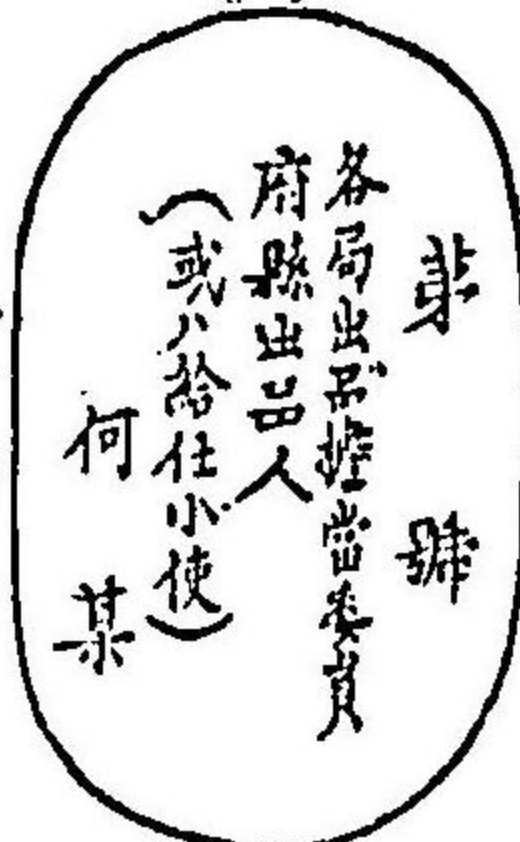 第 號
各局出品擔當委員
府縣出品人
(或ハ給仕小使)
何某